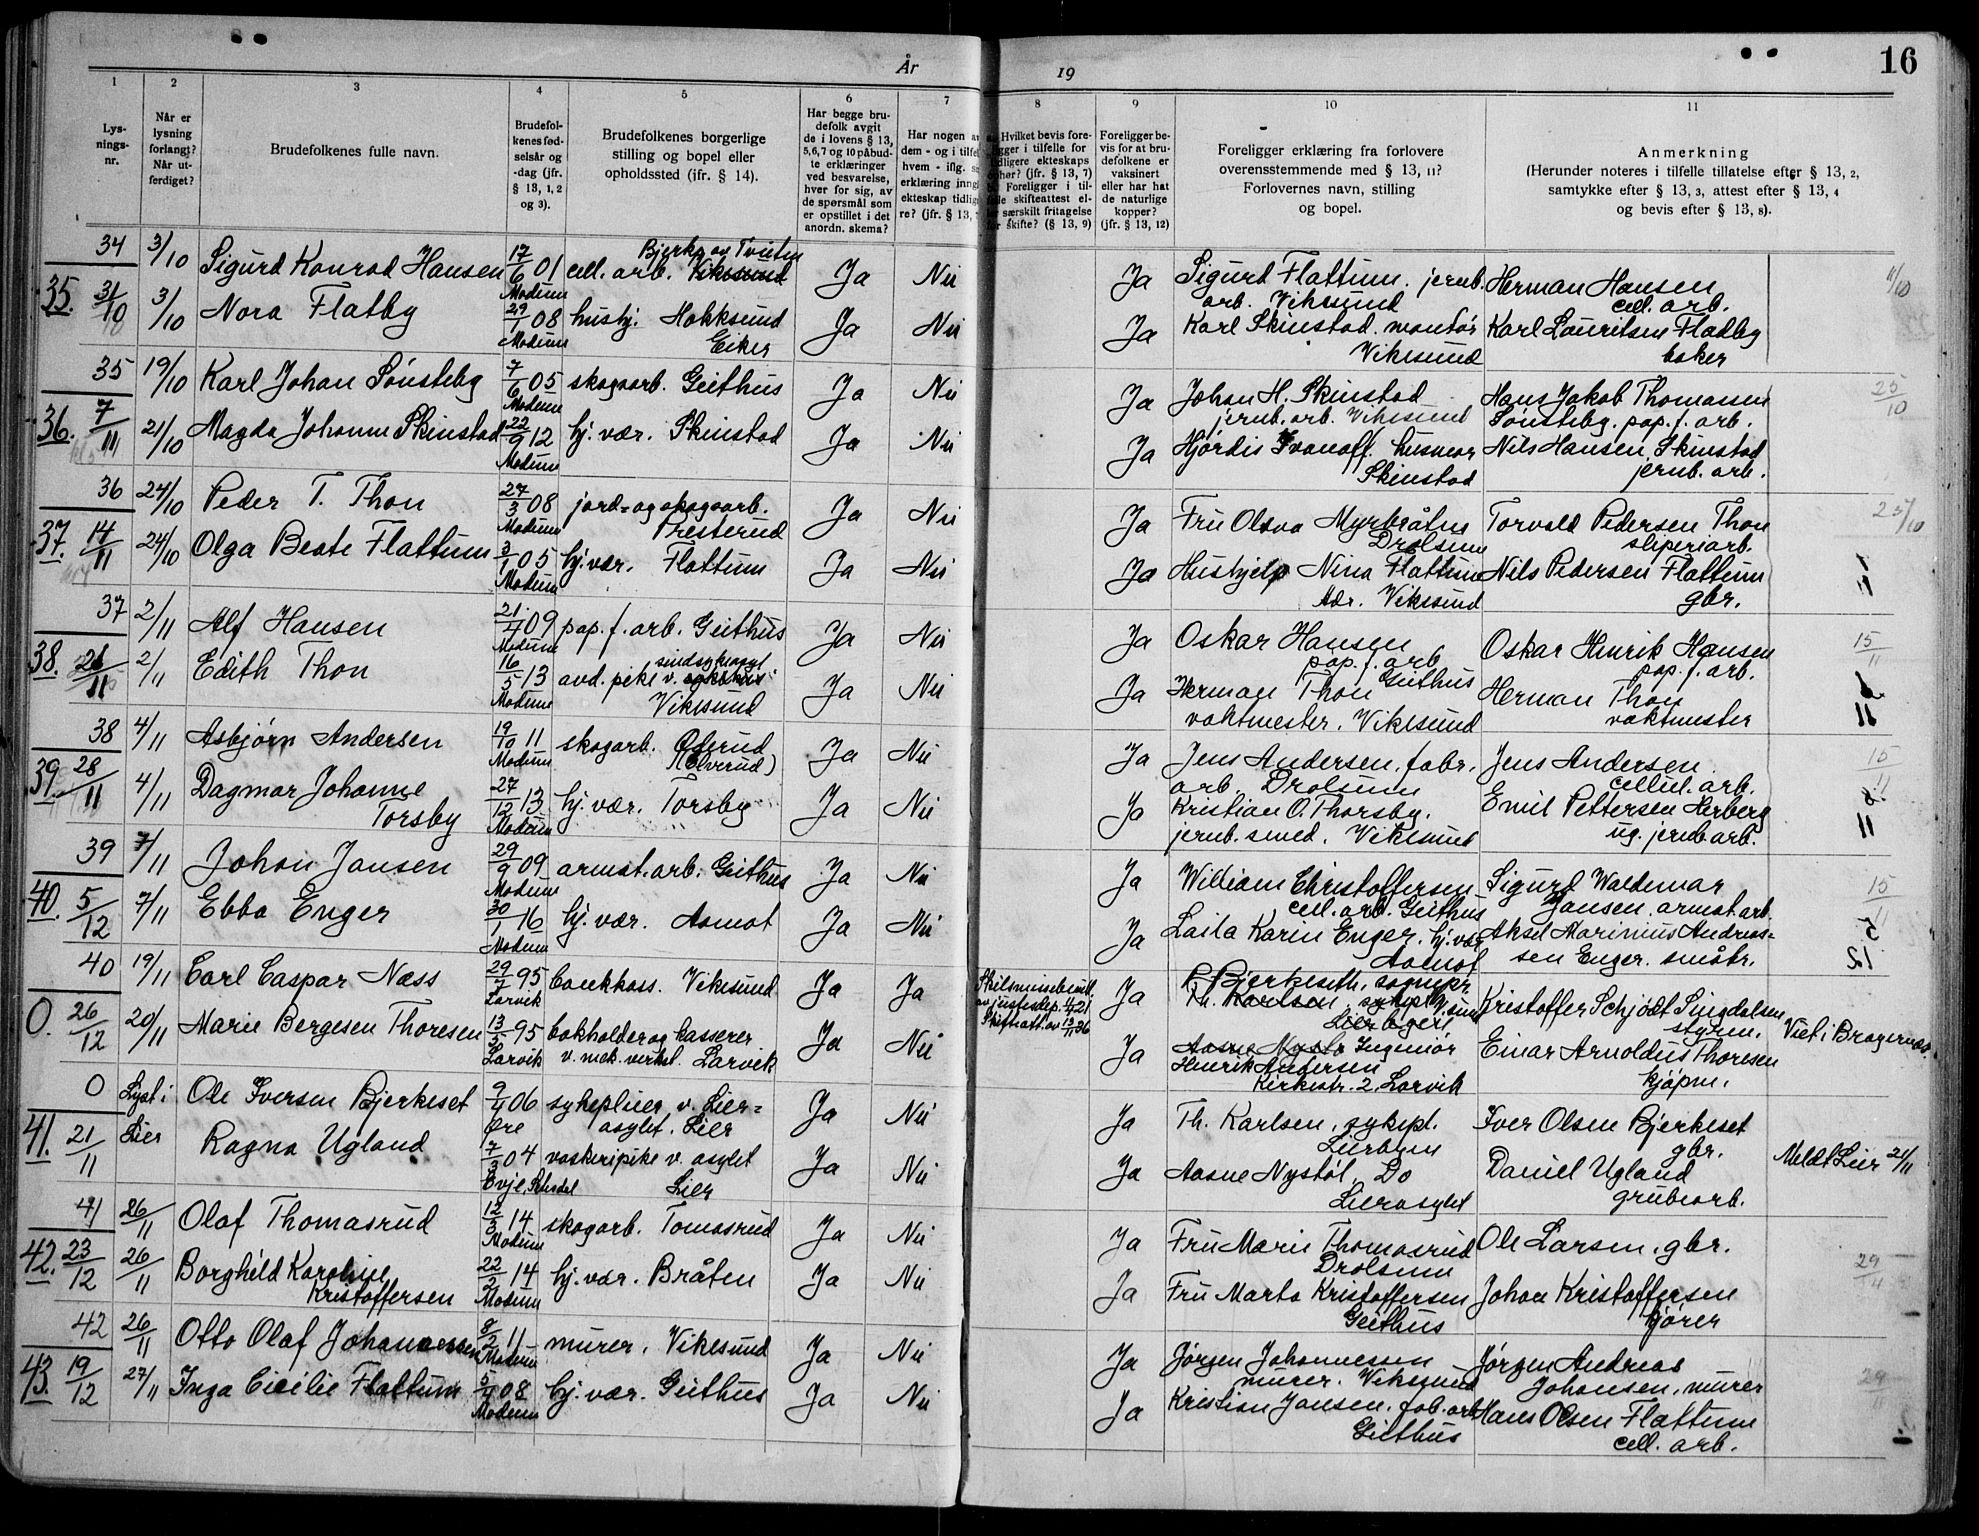 År
19
16
1
2
3
4
5
6
7
8
9
10
11
Lys-
nings-
nr.
Når er
lysning
forlangt?
Når ut-
ferdiget?
Brudefolkenes fulle navn.
Brudefol-
kenes fød-
selsår og
-dag (jfr.
§ 13, 1, 2
og 3).
Brudefolkenes borgerlige
stilling og bopel eller
opholdssted (ifr. § 14).
Har begge bru-
defolk avgit
de i lovens § 13,
5,6,7 og 10 påbud-
te erklæringer
ved besvarelse,
hver for sig, av
de spørsmål som
er opstillet i det
anordn. skema?
Har nogen a
dem - og i tilfel
hvem - iflg.
erklæring inng
ekteskap tidlig
re? (jfr. § 13, 7
Hvilket bevis fore-
ligger i tilfelle for
tidligere ekteskaps
ophør? (jfr. § 13, 7)
Foreligger i til-
felle skifteattest el-
ler særskilt fritagelse
for skifte? (§ 13, 9)
Foreligger be-
vis for at bru-
defolkene er
vaksinert
eller har hat
de naturlige
kopper?
(jfr. § 13, 12)
Foreligger erklæring fra forlovere
overensstemmende med § 13, 11?
Forlovernes navn, stilling
og bopel.
Anmerkning
(Herunder noteres i tilfelle tillatelse efter § 13, 2,
samtykke efter § 13, 3, attest efter § 13, 4
og bevis efter § 13, 8).
34 3/10 Sigurd Konrad Hansen 17/6 01 Modum cell. arb. Vikesund Bjerke av Tveiten Ja Nei Ja Sigurd Flattum. jernb. arb. Vikesund Herman Hansen cell. arb. 11/10
35. 31/10 3/10 Nora Flatby 29/1 08 Modum hushj. Hokksund Eiker Ja Nei Ja Karl Skinstad. montør Vikesund Karl Lauritsen Fladby baker
35 19/10 Karl Johan Sønsteby 7/6 05 Modum skogsarb. Geithus Ja Nei Ja Johan H. Skinstad jernb. arb. Vikesund Hans Jakob Thomassen Sønsteby. pap. f. arb. 25/10
36. 7/11 21/10 Magda Johanne Skinstad 22/9 12 Modum hj. vær. Skinstad Ja Nei Ja Hjördis Ivanoff. husmor Skinstad Nils Hansen Skinstad jernb. arb.
36 24/10 Peder T. Thon 27/3 08 Modum jord= og skogsarb. Presterud Ja Nei Ja Fru Olava Myrbråten Drolsum Torvald Pedersen Thon sliperiarb. 25/10
37. 14/11 24/10 Olga Beate Flattum 3/1 05 Modum hj. vær. Flattum Ja Nei Ja Hushjelp Nina Flattum Adr. Vikesund Nils Pedersen Flattum gbr.
37 2/11 Alf Hansen 21/4 09 Modum pap. f. arb. Geithus Ja Nei Ja Oskar Hansen pap. f. arb Geithus Oskar Henrik Hansen pap. f. arb. 15/11
38. 21/11 2/11 Edith Thon 16/5 13 Modum avd. pike v. sindsykeasyl Vikesund Ja Nei Ja Herman Thon vaktmester. Vikesund Herman Thon vaktmester
38 4/11 Asbjørn Andersen 19/10 11 Modum skogarb. Øderud (Elverud) Ja Nei Ja Jens Andersen. fabr. arb. Drolsum Jens Andersen cellul. arb. 15/11
39. 28/11 4/11 Dagmar Johanne Torsby 27/12 13 Modum hj. vær. Torsby Ja Nei Ja Kristian O. Thorsby. jernb. smed. Vikesund Emil Pettersen Herberg ug. jernb. arb.
39 7/11 Johan Jansen 29/9 09 Modum armat. arb. Geithus Ja Nei Ja William Christoffersen cell. arb. Geithus Sigurd Waldemar Jansen. armat. arb. 15/11
40. 5/12 7/11 Ebba Enger 30/1 16 Modum hj. vær. Aamot Ja Nei Ja Laila Karin Enger. hj. vær Aamot Aksel Marinius Andreas= sen Enger. småbr.
40 19/11 Carl Caspar Næss 29/7 95 Larvik bankkass. Vikesund Ja Ja Skilsmissebevill. av justisdep. 4/2 21 Skifteatt. av 13/11 36 Ja R. Bjerkeseth, sognepr. V.sund Th. Karlsen. sykepl. Lierbyen Kristoffer Schjødt Singdalsen styrm.
0. 26/12 20/11 Marie Bergesen Thoresen 13/5 95 Larvik bokholder og kasserer v. mek. verkst. Larvik Ja Nei Ja Aasne Nystøl Ingeniør Henrik Andersen Kirkestr. 2, Larvik Einar Arnoldus Thoresen kjøpm. Viet i Bragernes.
0 Lyst i Lier Ole Iversen Bjerkeset 9/4 06 Øre sykepleier v. Lier= asylet. Lier Ja Nei Ja Th. Karlsen, sykepl. Lierbyen Iver Olsen Bjerkeset gbr.
41. 21/11 Ragna Ugland 7/3 04 Evje, Setesdal vaskeripike v. asylet Lier Ja Nei Ja Aasne Nystøl, Do Lierasylet Daniel Ugland grubearb. Meldt Lier 21/11
41 26/11 Olaf Thomasrud 12/3 14 Modum skogarb. Tomasrud Ja Nei Ja Fru Marie Thomasrud Drolsum Ole Larsen. gbr.
42. 23/12 26/11 Borghild Karoline Kristoffersen 22/2 14 Modum hj. vær. Bråten Ja Nei Ja Fru Marta Kristoffersen Geithus Johan Kristoffersen kjører 29/
42 26/11 Otto Olaf Johannessen 8/2 11 Modum murer. Vikesund Ja Nei Ja Jørgen Johannessen murer. Vikesund Jørgen Andreas Johansen. murer 29/
43. 19/12 27/11 Inga Cicilie Flattum 5/4 08 Modum hj. vær. Geithus Ja Nei Ja Kristian Jansen. fab. arb. Geithus Hans Olsen Flattum cell. arb.